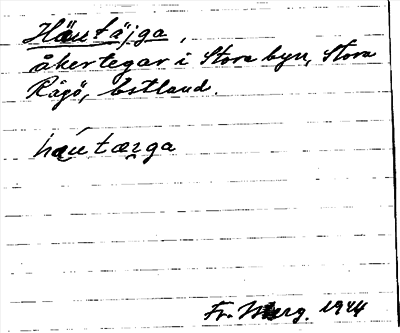 Häutäjga,
åkertegar i Stora byn, Stora
Rågö, Estland.
häutæʀga
Fr. 1944